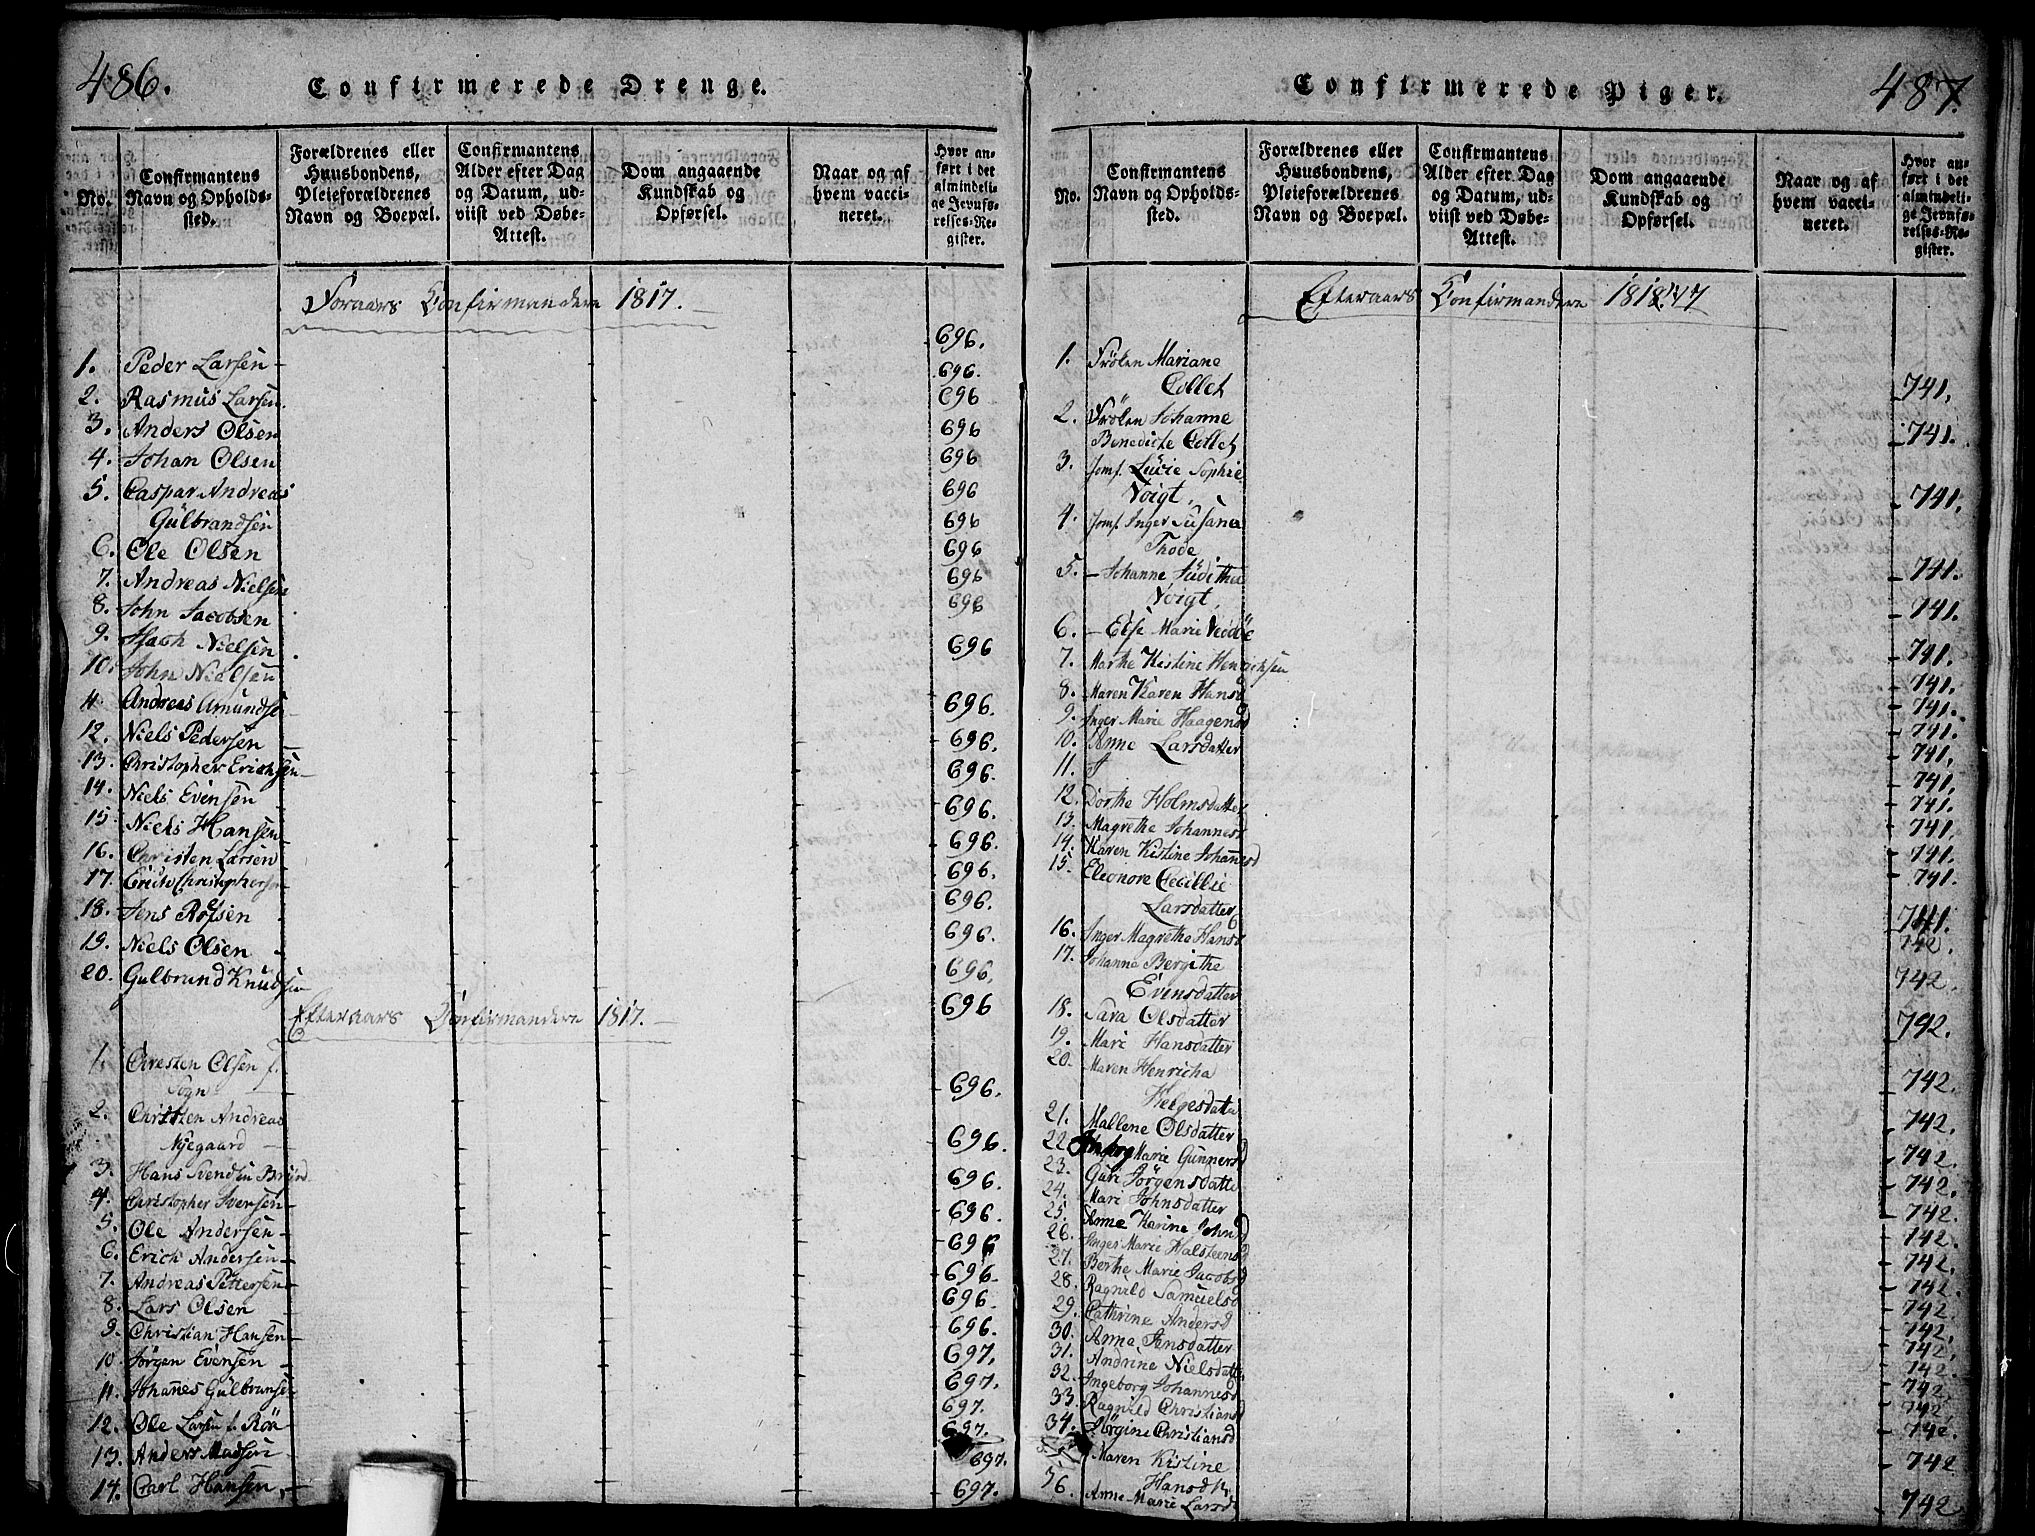 486.
Confirmerede Drenge.
No.
Confirmantens Navn og Opholds-sted.
Forældrenes eller Huusbondens, Pleieforældrenes Navn og Boepæl.
Confirmantens Alder efter Dag og Datum, ud-viist ved Døbe-Attest.
Dom angaaende Kundskab og Opførsel.
Naar og af hvem vacci-neret.
Hvor an-ført i det almindeli-ge Jevnfø-relses-Re-gister.
Foraars Confirmandere 1817.
696.
1. Peder Larsen 696.
2. Rasmus Larsen 696
3. Anders Olsen 696
4. Johan Olsen 696
5. Caspar Andreas 696
Gülbrandsen 696
6. Ole Olsen 696
7. Andreas Nielsen 696
8. John Jacobsen 696
9. Isach Nielsen 696
10. John Nielsen
11. Andreas Amundse 696.
12. Niels Pedersen 696.
13. Christopher Erichsen 696.
14. Niels Evensen 696.
15. Niels Hansen 696.
16. Christen Larsen 696.
17. Christophersen 696.
18. Jens 696.
19. Niels Olsen 696.
20. Gulbrand Knudsen 696
Efteraars Confirmandere 1817.
1. Christen Olsen f.
Sogn 696.
2. Christen Andreas
Nyegaard 696.
3. Hans Svendsen 696.
4. Christopher Iversen 696.
5. Ole Andersen 696
6. Erich Andersen 696.
7. Andreas Pettersen 696.
8. Lars Olsen 696.
9. Christian Hansen 697.
10 Jørgen Evensen 697.
11. Johannes Gülbransen 697.
12. Ole Larsen f. Röa 697.
13. Anders Madsen 697.
14. Carl Hansen 697.
487.
Confirmerede Piger.
No.
Confirmantens Navn og Opholds-sted.
Forældrenes eller Huusbondens, Pleieforældrenes Navn og Boepæl.
Confirmantens Alder efter Dag og Datum, ud-viist ved Døbe-Attest.
Dom angaaende Kundskab og Opførsel.
Naar og af hvem vacci-neret.
Hvor an-ført i det almindeli-ge Jevnfø-relses-Re-gister.
Efteraars Confirmandere
1. Frøken Mariane
Collet 741.
2. Frøken Johanne
Benedicte Collet 741.
3. Jomf. Lucie Sophie
Voigt, 741.
4. Jomf. Inger Susana
Thode
5. — Johanne Judithe 741.
Voigt, 741.
6. — Else Marie
7. Marthe Kistine Henrichsen 741.
8. Maren Karen Hansd 741.
9. Inger Marie Haagensd 741.
10. Anne Larsdatter 741.
11. 741.
12. Dorthe Holmsdatter 741.
13. Magrethe Johannesd 741.
14. Karen Kistine Johannesd 741.
15. Eleonore Cecillie 741.
Larsdatter 741.
16. Inger Magrethe Hansd 742.
17. Johanna Bergithe
Evensdatter 742.
18. Sara Olsdatter 742.
19. Mari Hansdatter
20. Maren Henricha 742.
Helgesdatter
21. Mallene Olsdatter 742.
22 Marie Gunnersd 742.
23. Guri Jörgensdatter 742.
24. Mari Johnsdatter 742.
25. Anne Karine Johnsd 742.
26. Inger Marie Halsteensd 742.
27. Berthe Marie Jacobsd 742.
28. Ragnild Samuelsd 742.
29. Cathrine Andersd 742.
30. Anna Jensdatter 742.
31. Andrine Nielsdatter 742.
32. Ingeborg Johannesd 742.
33. Ragnild Christiansd 742.
34. Jörgine Christiansd 742.
Maren Kistine 742
Hansd
36. Anne Marie Larsd 742